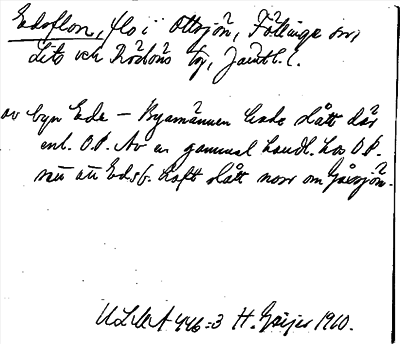 Edsflon, flo i Ottsjön, Föllinge sn,
Lits och Rödöns tg, Jämtl. l.
av byn Ede – Byamännen hade slått där
enl. O.P. Av en gammal handl. hos O.P.
att Edsb. haft slått norr om Gåxsjön.
ULMA 446:3 H. Geijer 1910.